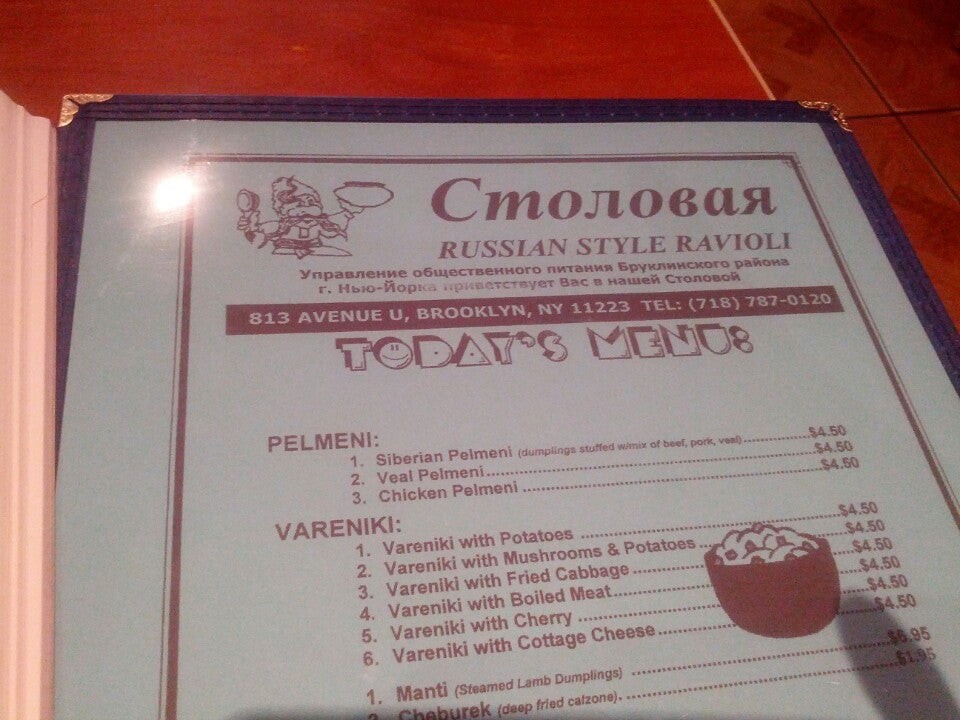 Столовая
RUSSIAN STYLE RAVIOLI
Управление общественного питания Бруклинского района
г. Нью-Йорка приветствует Вас в нашей Столовой
813 AVENUE U, BROOKLYN, NY 11223 TEL: (718) 787-0120
TODAY'S MENU:
PELMENI:
1. Siberian Pelmeni (dumplings stuffed w/mix of beef, pork, veal)..............$4.50
2. Veal Pelmeni..............$4.50
3. Chicken Pelmeni ..............$4.50
VARENIKI:
1. Vareniki with Potatoes ..............$4.50
2. Vareniki with Mushrooms & Potatoes..............$4.50
3. Vareniki with Fried Cabbage..............$4.50
4. Vareniki with Boiled Meat..............$4.50
5. Vareniki with Cherry ..............$4.50
6. Vareniki with Cottage Cheese..............$4.50
1. Manti (Steamed Lamb Dumplings) ..............$6.95
2. Cheburek (deep fried calzone)...............$1.95